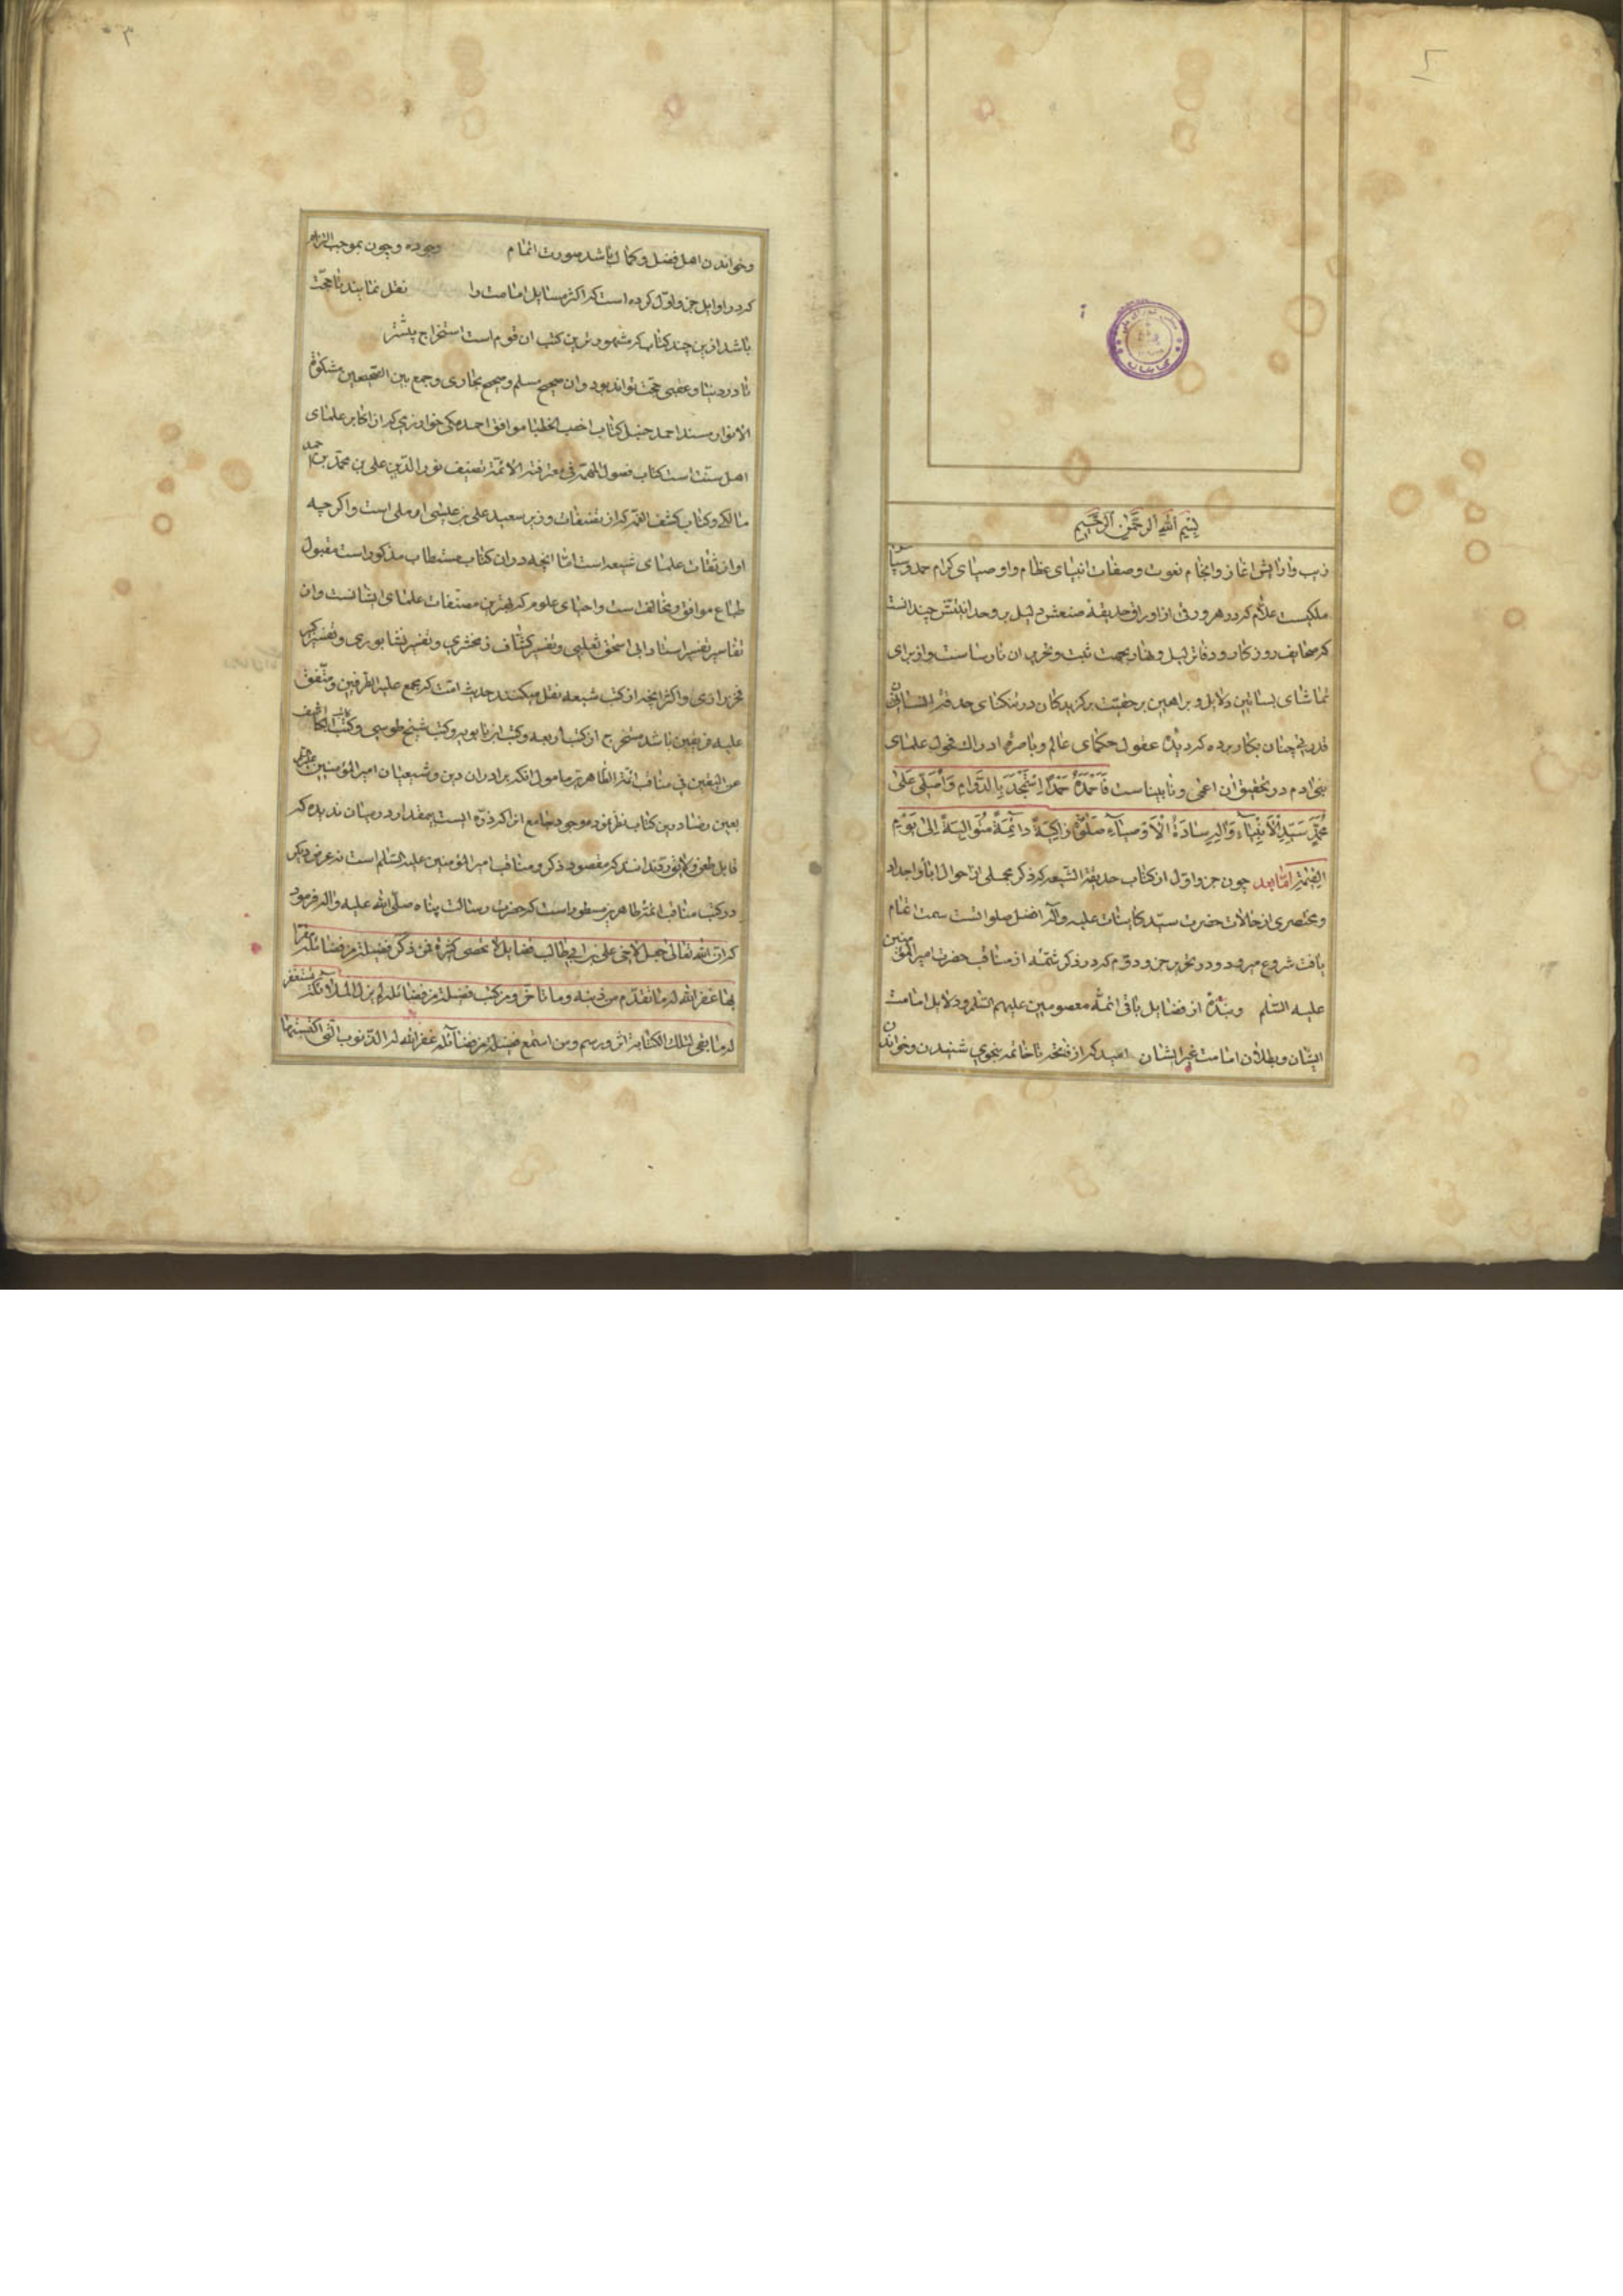 بسم الله الرحمن الرحیم
زیب و ارایش اغاز و انجام نعوت و صفات انبیای عظام و اوصیای کرام حمد و سپاس
ملکیست علام که در هر ورقی از اوراق حدیقهٔ صنعش دلیل بر وحدانیتش چندانست
که صحایف روزکار و دفاتر لیل و نهار بجهت ثبت و تحریر ان نارساست و از برای
تماشای بساتین دلایل و براهین بر حقیت برکزیدکان در تنکنای حدقهٔ انسانی
قدرتی چنان بکار برده که دیدهٔ عقول حکمای عالم و باصرهٔ ادراک فحول علمای
بنی ادم در تحقیق ان اعمی و نابیناست فَاَحْمَدُهُ حَمْدًا بِالدَّوَامِ وَاُصَلِّی عَلیٰ
مُحَمَّدٍ سَیِّدِ الْاَنْبِیَآءِ وَآلِهِ سَادَةِ الْاَوْصِیَآءِ صَلٰوةً زَاکِیَةً دَآئِمَةً مُتَوَالِیَةً اِلیٰ یَوْمِ
القیٰمة امّا بعد چون جزو اوّل از کتاب حدیقة الشیعه که ذکر مجملی از احوال ابا و اجداد
و مختصری از حالات حضرت سیّد کاینات علیه واله افضل صلوات است سمت اتمام
یافت شروع میرود در تحریر جزو دوّم که در ذکر شمّهٔ از مناقب حضرت امیرالمؤمنین
علیه السّلم و نبذهٔ از فضایل باقی ائمّهٔ معصومین علیهم السّلم و دلایل امامت
ایشان و بطلان امامت غیر ایشان امید که از فتحه تا خاتمه بنحوی شنیدن و خواندن
و خواندن اهل فضل و کمال باشد صورت اتمام وجوده و چون بموجب التزام
که در اوایل جزو اوّل کرده است که اکثر مسایل امامت را نقل نمایند تا حجّت
باشد ازین چند کتاب که مشهورترین کتب ان قوم است استخراج بیشتر
تا در دنیا و عقبی حجّت تواند بود و ان صحیح مسلم و صحیح بخاری و جمع بین الصّحیحین مشکوة
الانوار مسند احمد حنبل کتاب اخطب الخطبا موافق احمد مکی خوارزمی که از اکابر علمای
اهل سنّت است کتاب فصول المهمّة فی معرفة الائمّة تصنیف نورالدّین علی بن محمّد بن احمد
مالکی و کتاب کشف الغمّه که از تصنیفات وزیر سعید علی بن عیسی اردبیلی است و اکرچه
او از ثقات علمای شیعه است امّا انچه در ان کتاب مستطاب مذکور است مقبول
طباع موافق و مخالف است و احیای علوم که بهترین مصنّفات علمای ایشانست و از
تفاسیر تفسیر استاد ابی اسحق ثعلبی و تفسیر کشّاف زمخشری و تفسیر نشابوری و تفسیر کبیر
فخر رازی و اکثر انچه از کتب شیعه نقل میکنند حدیث است که مجمع علیه الطّرفین و متّفق
علیه فریقین باشد مستخرج از کتب اربعه و کتب ابن بابویه و کتب شیخ طوسی و کتاب کاشف
عن الیقین فی مناقب ائمة الطاهرین مامول انکه برادران دین و شیعیان امیرالمؤمنین
بعین رضا درین کتاب نظر فرموده
قابل طعن و لایق رد ندانند که مقصود ذکر مناقب امیرالمؤمنین علیه السّلم است نه غرض دیکر
در کتب مناقب ائمّهٔ طاهرین مسطور است که حضرت رسالت پناه صلّی الله علیه واله فرمود
که انّ الله تعالی جعل لاخی علی بن ابی طالب فضایل لا تحصی کثرة فمن ذکر فضیلة من فضائله مقرّا
بها غفر الله له ما تقدّم من ذنبه وما تاخّر ومن کتب فضیلة من فضائله لم یزل الملائکة تستغفر
له ما بقی لتلک الکتابة اثر و رسم ومن استمع فضیلة من فضآئله غفر الله له الذنوب الّتی اکتسبها